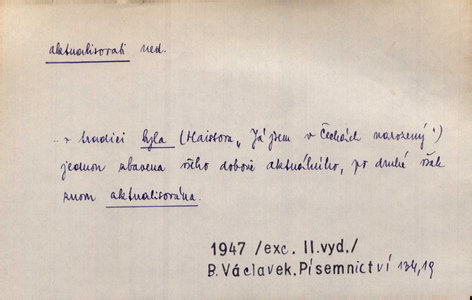 aktualisovati ned.
.. v tradici byla (Haissova „Já jsem v Čechách narozený")
jednou zbavena všeho dobově aktuálního, po druhé však
znovu aktualisována.
1947 /exc. II.vyd./
B. Václavek, Písemnictví 134,19